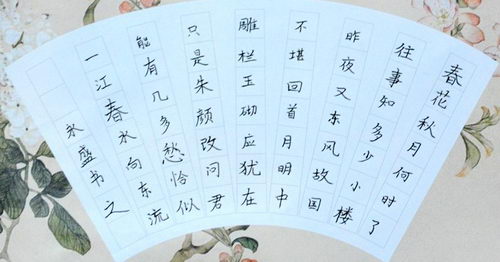 春花秋月何时了
往事知多少小楼
昨夜又东风故国
不堪回首月明中
雕栏玉砌应犹在
只是朱颜改问君
能有几多愁恰似
一江春水向东流
永盛书之